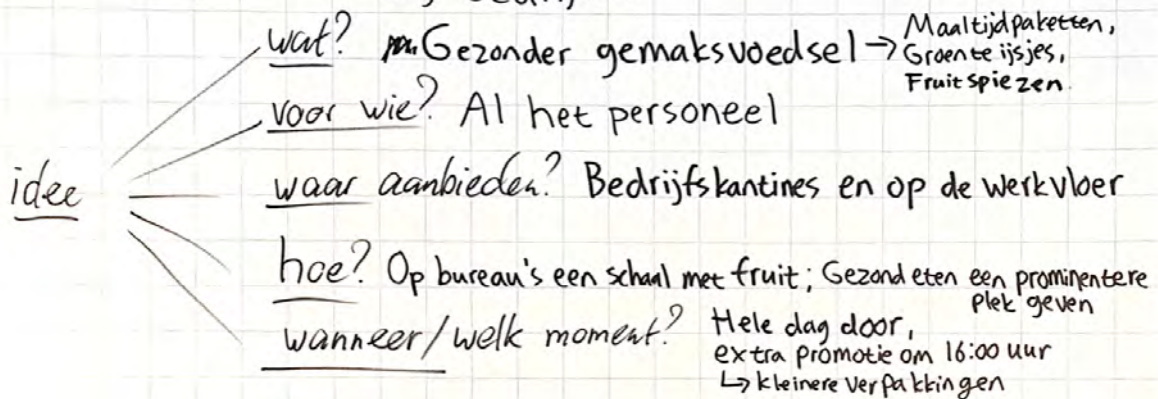 wat? Gezonder gemaksvoedsel → Maaltijdpaketten,
Groente ijsjes,
Fruitspiezen
voor wie? Al het personeel
idee
waar aanbieden? Bedrijfskantines en op de werkvloer
hoe? Op bureau's een schaal met fruit; Gezond eten een prominentere
plek geven
wanneer/welk moment? Hele dag door,
extra promotie om 16:00 uur
↳ kleinere verpakkingen